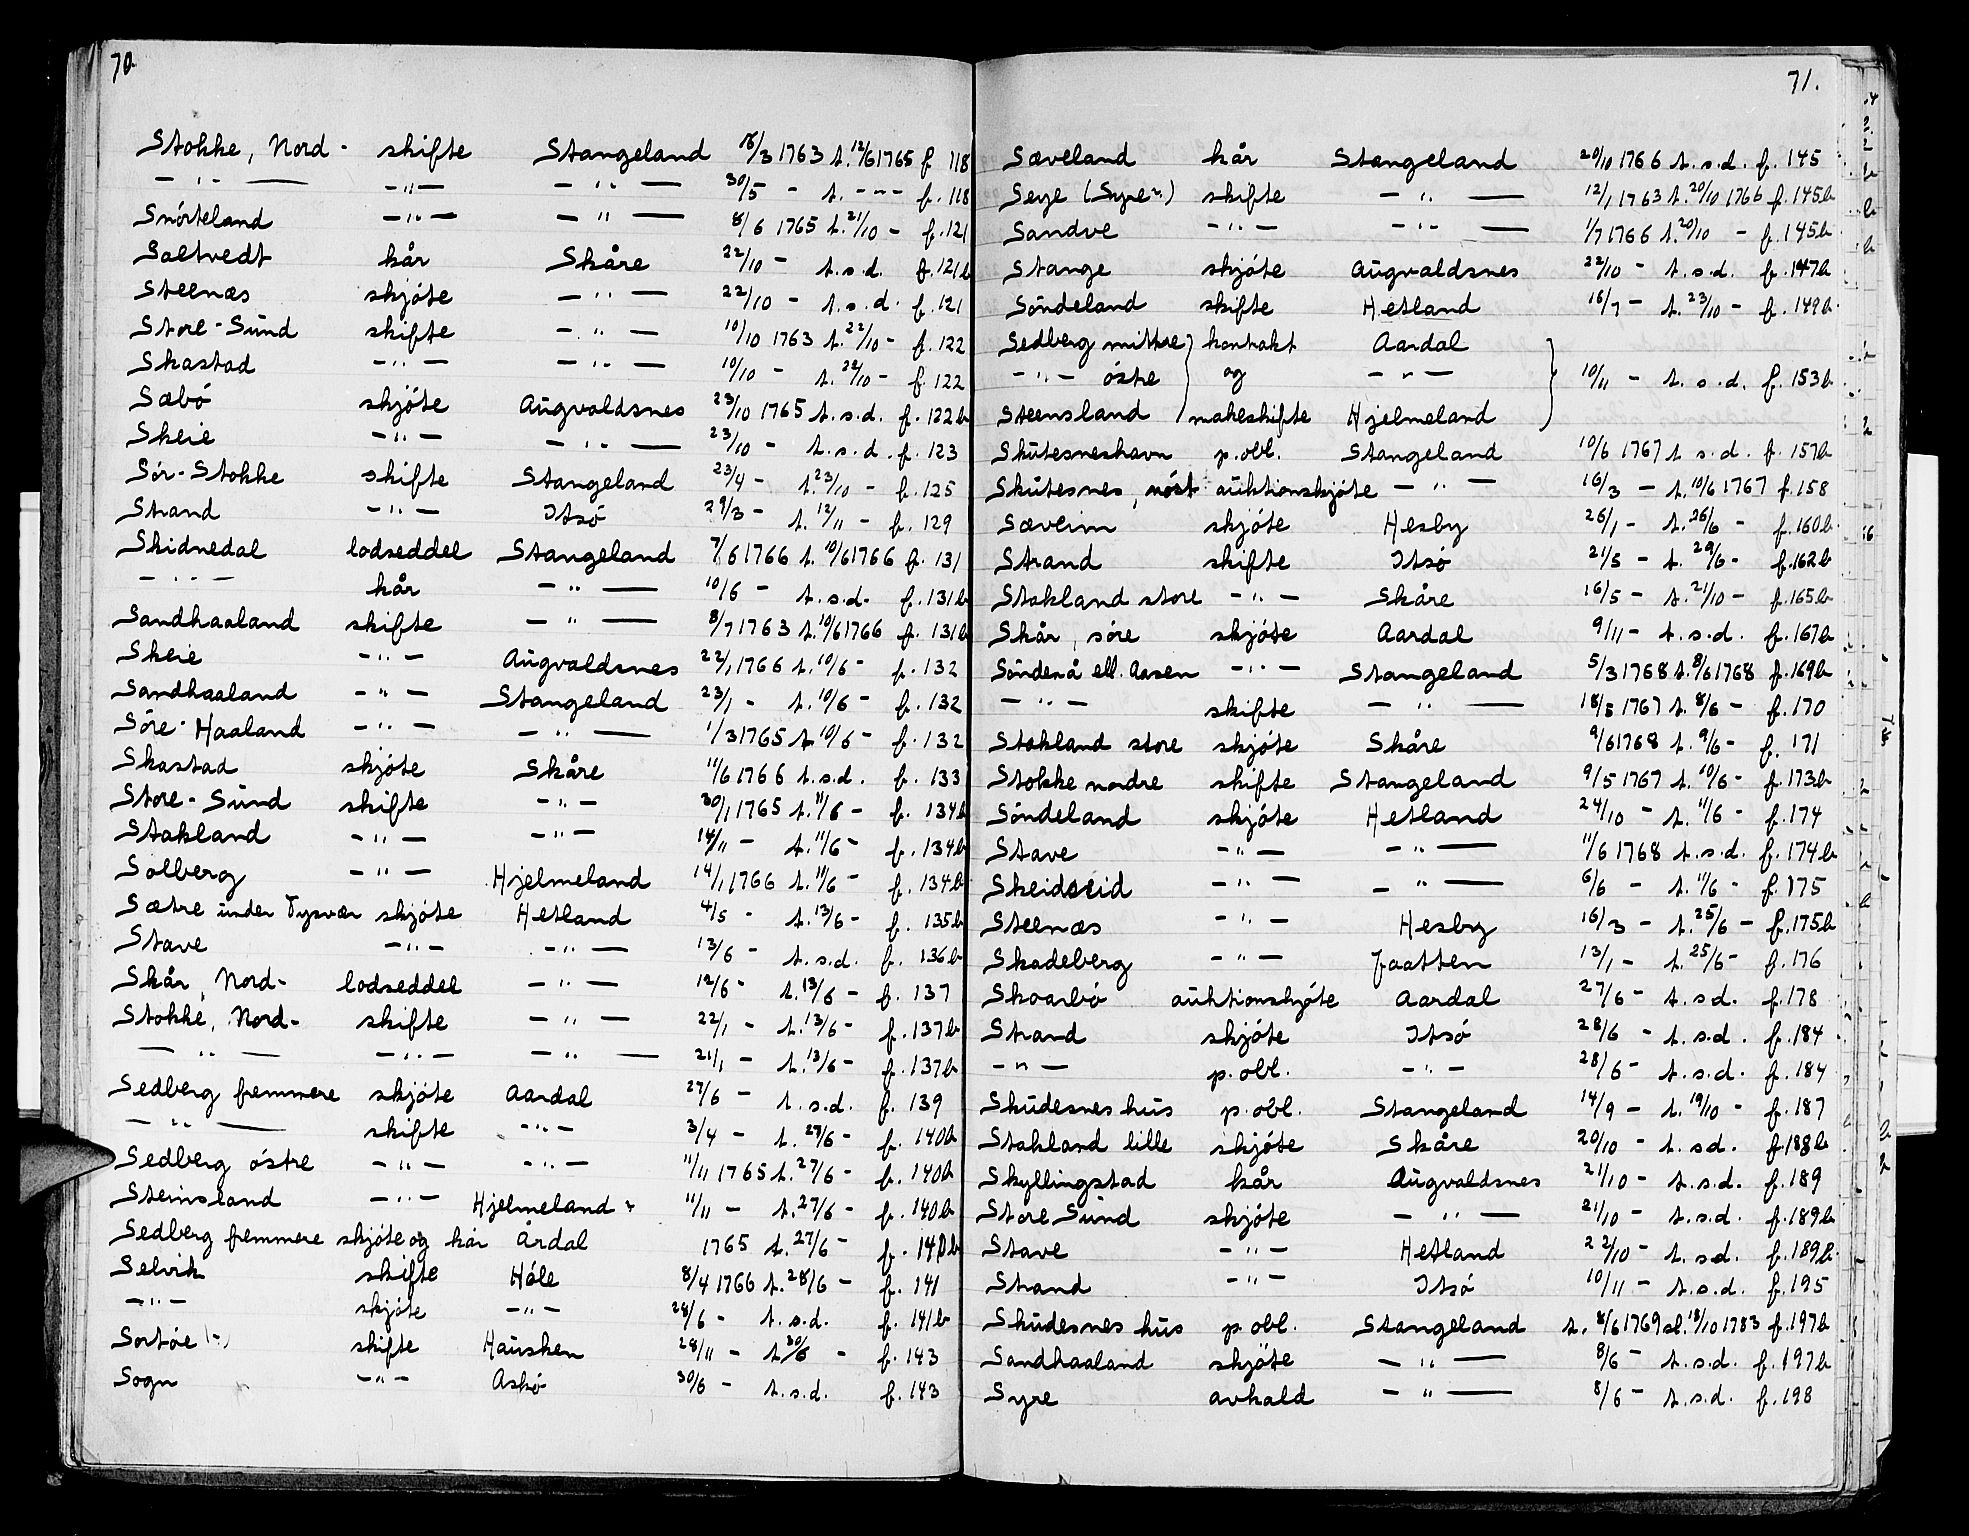 70.
Stokke, Nord- skifte Stangeland 16/3 1763 t. 12/6 1765 f. 118
— " — — " — — " — 30/5 - t. - " - f. 118
Snörteland — " — — " — 8/6 1765 t. 21/10 - f. 121
Saltvedt kår Skåre 22/10 - t.s.d. f. 121b
Steenæs skjöte — " — 22/10 - t.s.d. f. 121
Store-Sund skifte — " — 10/10 1763 t. 22/10 - f. 122
Skastad — " — — " — 10/10 - t. 22/10 - f. 122
Sæbö skjöte Augvaldsnes 23/10 1765 t.s.d. f. 122b
Skeie — " — — " — 23/10 - t.s.d. f. 123
Sör-Stokke skifte Stangeland 23/4 - t. 23/10 - f. 125
Strand — " — Itsö 29/3 - t. 12/11 - f. 129
Skidnedal lodseddel Stangeland 7/6 1766 t. 10/6 1766 f. 131
— " — kår — " — 10/6 - t.s.d. f. 131b
Sandhaaland skifte — " — 8/7 1763 t. 10/6 1766 f. 131b
Skeie — " — Augvaldsnes 22/1 1766 t. 10/6 - f. 132
Sandhaaland — " — Stangeland 23/1 - t. 10/6 - f. 132
Söre-Haaland — " — — " — 1/3 1765 t. 10/6 - f. 132
Skastad skjöte Skåre 11/6 1766 t.s.d. f. 133
Store-Sund skifte — " — 30/1 1765 t. 11/6 - f. 134b
Stakland — " — — " — 14/11 - t. 11/6 - f. 134b
Solberg — " — Hjelmeland 14/1 1766 t. 11/6 - f. 134b
Sætre under Tysvær skjöte Hetland 4/5 - t. 13/6 - f. 135b
Stave — " — — " — 13/6 - t.s.d. f. 136b
Skår, Nord- lodseddel — " — 12/6 - t. 13/6 - f. 137
Stokke, Nord- skifte — " — 22/1 - t. 13/6 - f. 137b
— " — — " — — " — 21/1 - t. 13/6 - f. 137b
Sedberg fremmere skjöte Aardal 27/6 - t.s.d. f. 139
— " — skifte — " — 3/4 - t. 27/6 - f. 140b
Sedberg östre — " — — " — 11/11 1765 t. 27/6 - f. 140b
Steinsland — " — Hjelmeland 11/11 - t. 27/6 - f. 140b
Sedberg fremmere skjöte og kår Årdal 1765 t. 27/6 - f. 141b
Selvik skifte Höle 8/4 1766 t. 28/6 - f. 141
— " — skjöte — " — 28/6 - t.s.d. f. 141b
Sortöe (-) skifte Hausken 28/11 - t. 30/6 - f. 143
Sogn — " — Askö 30/6 - t.s.d. f. 143
71.
Sæveland kår Stangeland 20/10 1766 t.s.d. f. 145
Seye (Syre?) skifte — " — 12/1 1763 t. 20/10 1766 f. 145b
Sandve — " — — " — 1/7 1766 t. 20/10 - f. 145b
Stange skjöte Augvaldsnes 22/10 - t.s.d. f. 147b
Söndeland skifte Hetland 16/7 - t. 23/10 - f. 149b
Sedberg mittre kontrakt Aardal
— " — östre og — " — 10/11 - t.s.d. f. 153b
Steensland makeskifte Hjelmeland
Skutesneshavn p.obl. Stangeland 10/6 1767 t s.d. f. 157b
Skutesnes, nöst auktionskjöte — " — 16/3 - t. 10/6 1767 f. 158
Sæveim skjöte Hesby 26/1 - t. 26/6 - f. 160b
Strand skifte Itsö 21/5 - t. 29/6 - f. 162b
Stakland store — " — Skåre 16/5 - t. 21/10 - f. 165b
Skår, söre skjöte Aardal 9/11 - t.s.d. f. 167b
Söndenå ell. Aasen — " — Stangeland 5/3 1768 t. 8/6 1768 f. 169b
— " — skifte — " — 18/5 1767 t. 8/6 - f. 170
Stakland store skjöte Skåre 9/6 1768 t. 9/6 - f. 171
Stokke nordre skifte Stangeland 9/5 1767 t. 10/6 - f. 173b
Söndeland skjöte Hetland 24/10 - t. 11/6 - f. 174
Stave — " — — " — 11/6 1768 t.s.d. f. 174b
Skeidseid — " — — " — 6/6 - t. 11/6 - f. 175
Steenæs — " — Hesby 16/3 - t. 25/6 - f. 175b
Skadeberg — " — Jaatten 13/1 - t. 25/6 - f. 176
Skoarbö auktionskjöte Aardal 27/6 - t.s.d. f. 178
Strand skjöte Itsö 28/6 - t.s.d. f. 184
— " — p.obl. — " — 28/6 - t.s.d. f. 184
Skudesnes hus p.obl. Stangeland 14/9 - t. 19/10 - f. 187
Stakland lille skjöte Skåre 20/10 - t. sd. f. 188b
Skyllingstad kår Augvaldsnes 21/10 - t.s.d. f. 189
Store Sund skjöte — " — 21/10 - t.s.d. f. 189b
Stave — " — Hetland 22/10 - t.s.d. f. 189b
Strand — " — Itsö 10/11 - t.s.d. f. 195
Skudesnes hus p.obl. Stangeland t. 8/6 1769 al. 18/10 1783 f. 197b
Sandhaaland skjöte — " — 8/6 - t.s.d. f. 197b
Syre avkald — " — 8/6 - t.s.d. f. 198